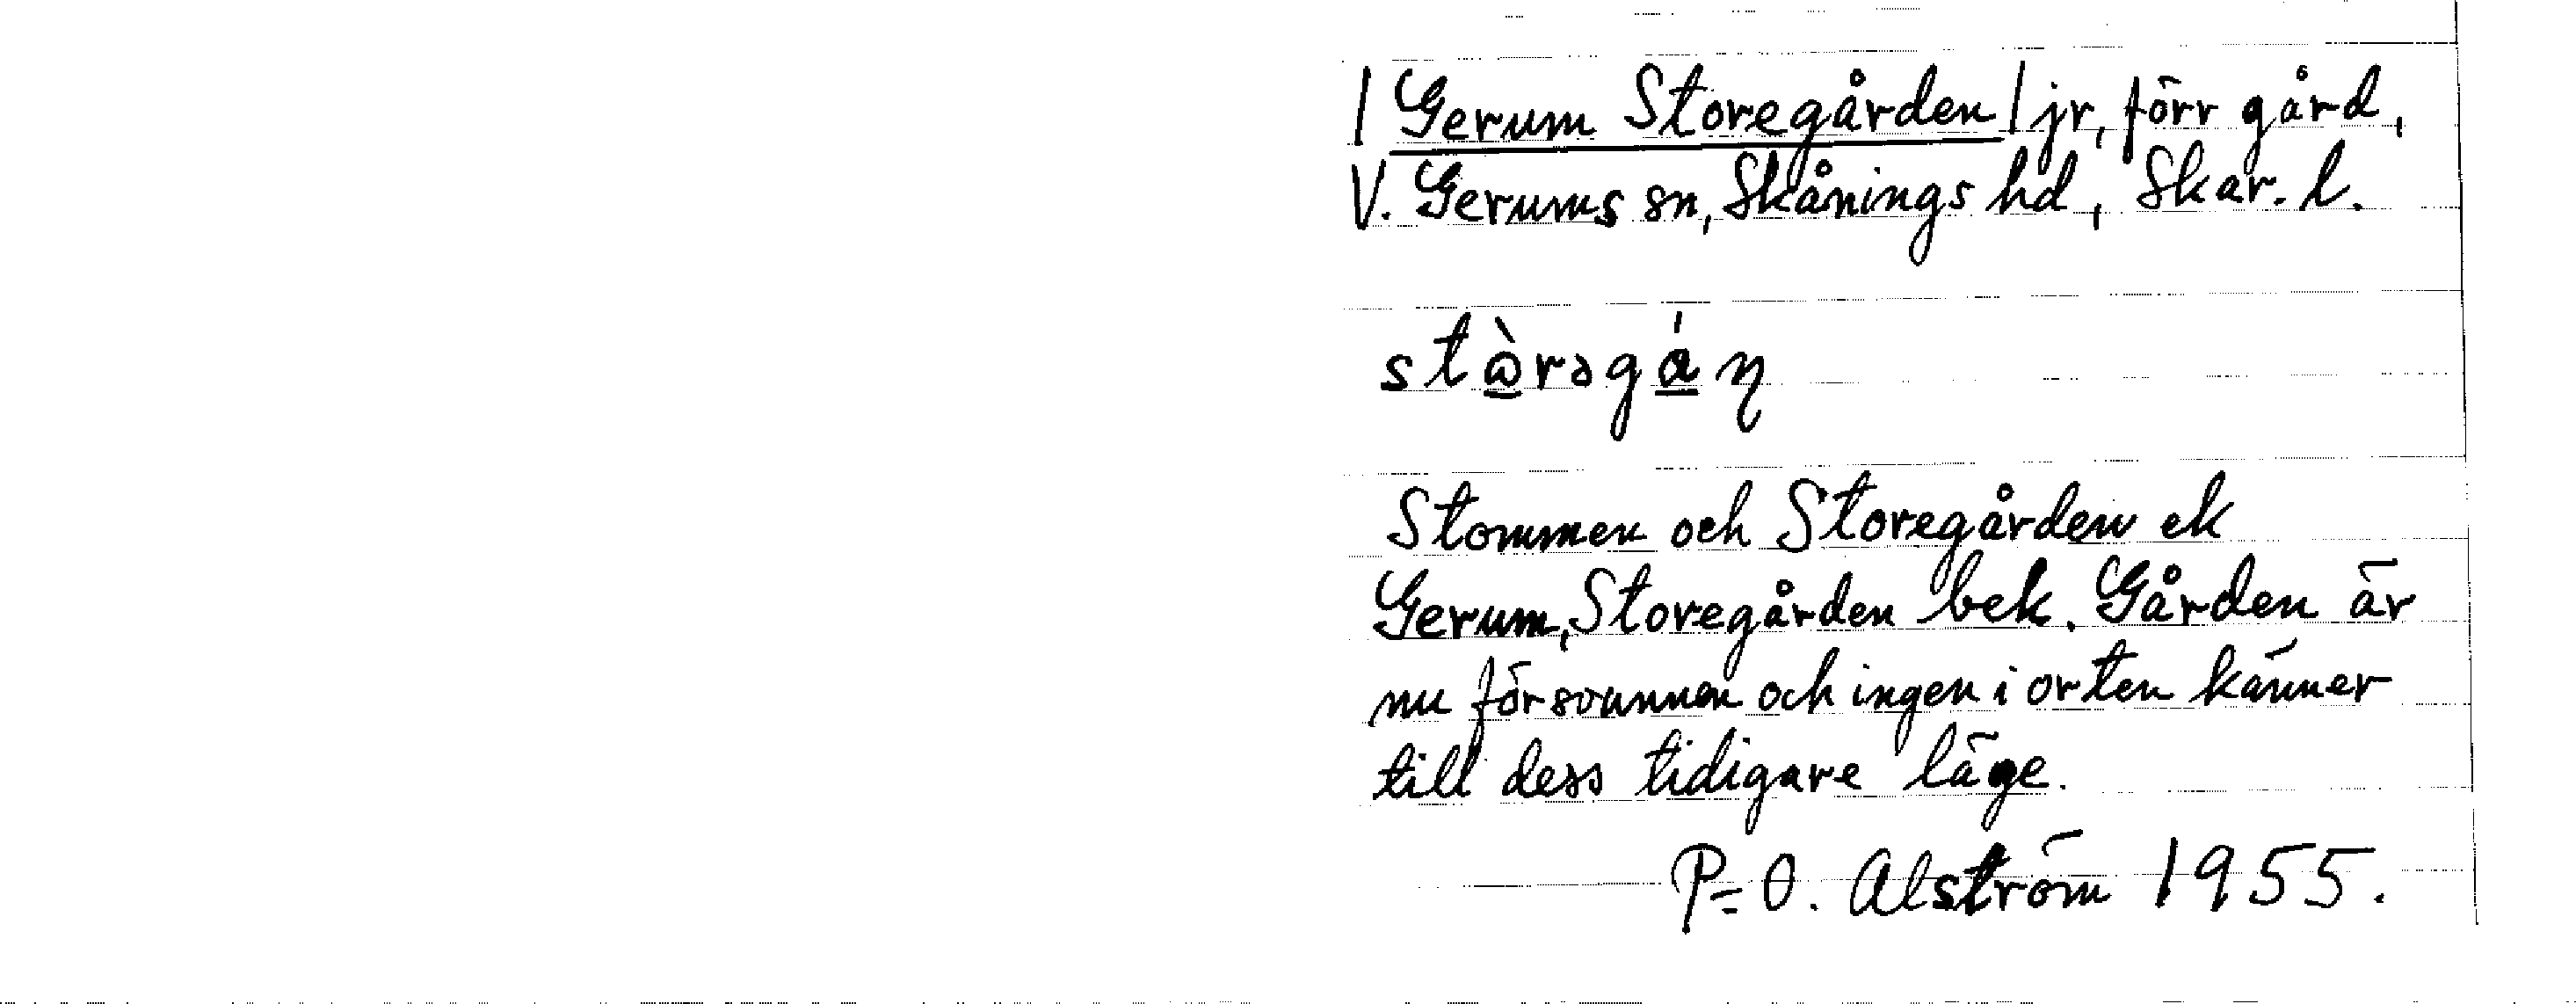 | Gerum Storegården | jr, förr gård,
V. Gerums sn, Skånings hd, Skar. l.
stȯ̀rəgán
Stommen och Storegården ek
Gerum, Storegården bek. Gården är
nu försvunnen och ingen i orten känner
till dess tidigare läge.
P=O. Alström 1955.